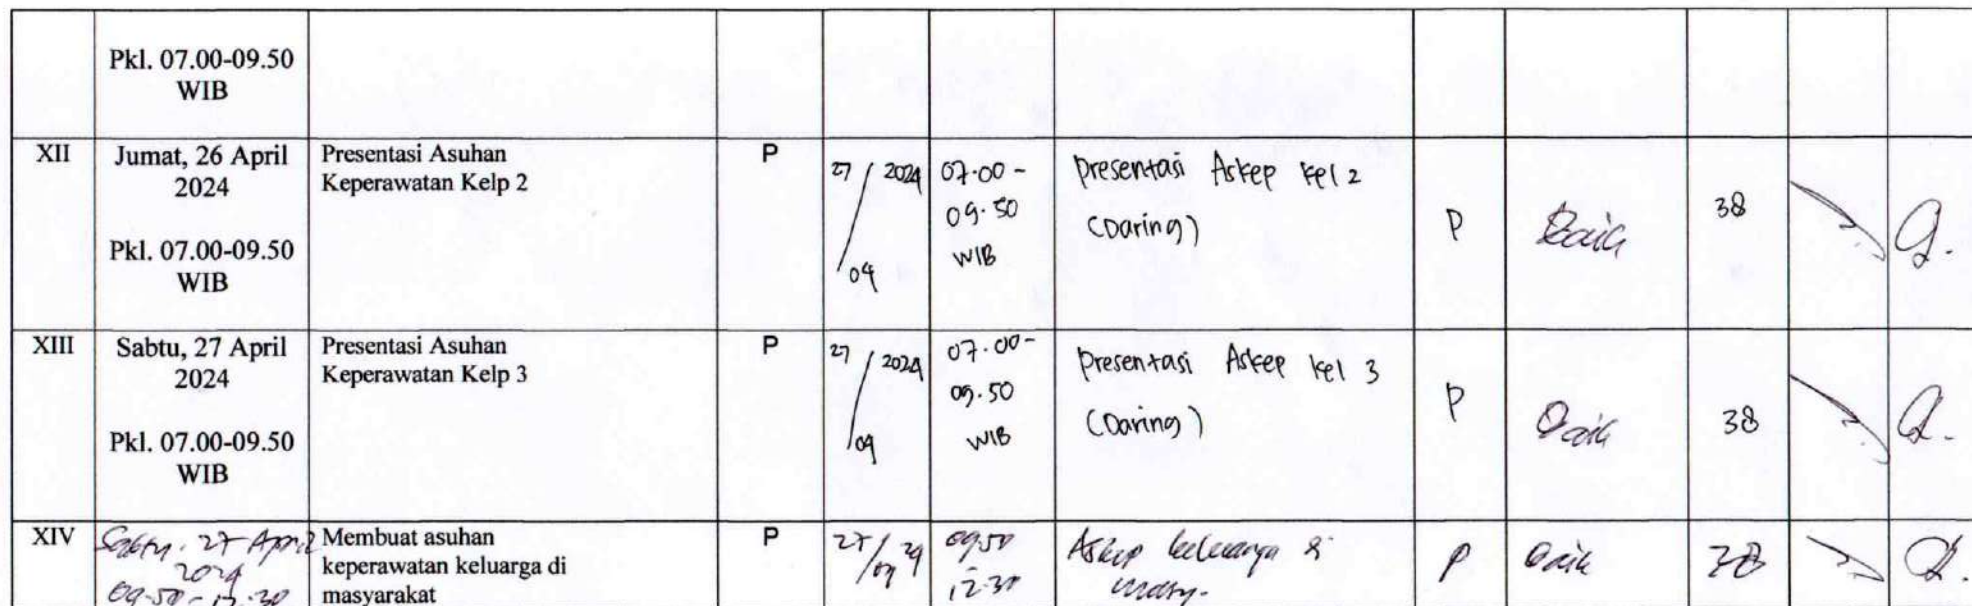 Pkl. 07.00-09.50
WIB
XII
Jumat, 26 April
2024
Pkl. 07.00-09.50
WIB
Presentasi Asuhan
Keperawatan Kelp 2
P
27 / 2024
04
07.00 -
09.50
WIB
Presentasi Askep kel 2
(Daring)
P
Baik
38
XIII
Sabtu, 27 April
2024
Pkl. 07.00-09.50
WIB
Presentasi Asuhan
Keperawatan Kelp 3
P
27 / 2024
04
07.00-
09.50
WIB
Presentasi Askep kel 3
(Daring)
P
Baik
38
XIV
Sabtu, 27 April
2024
09.50 - 12.30
Membuat asuhan
keperawatan keluarga di
masyarakat
P
27/04 24
09.50
12.30
Askep keluarga di
P
Baik
38